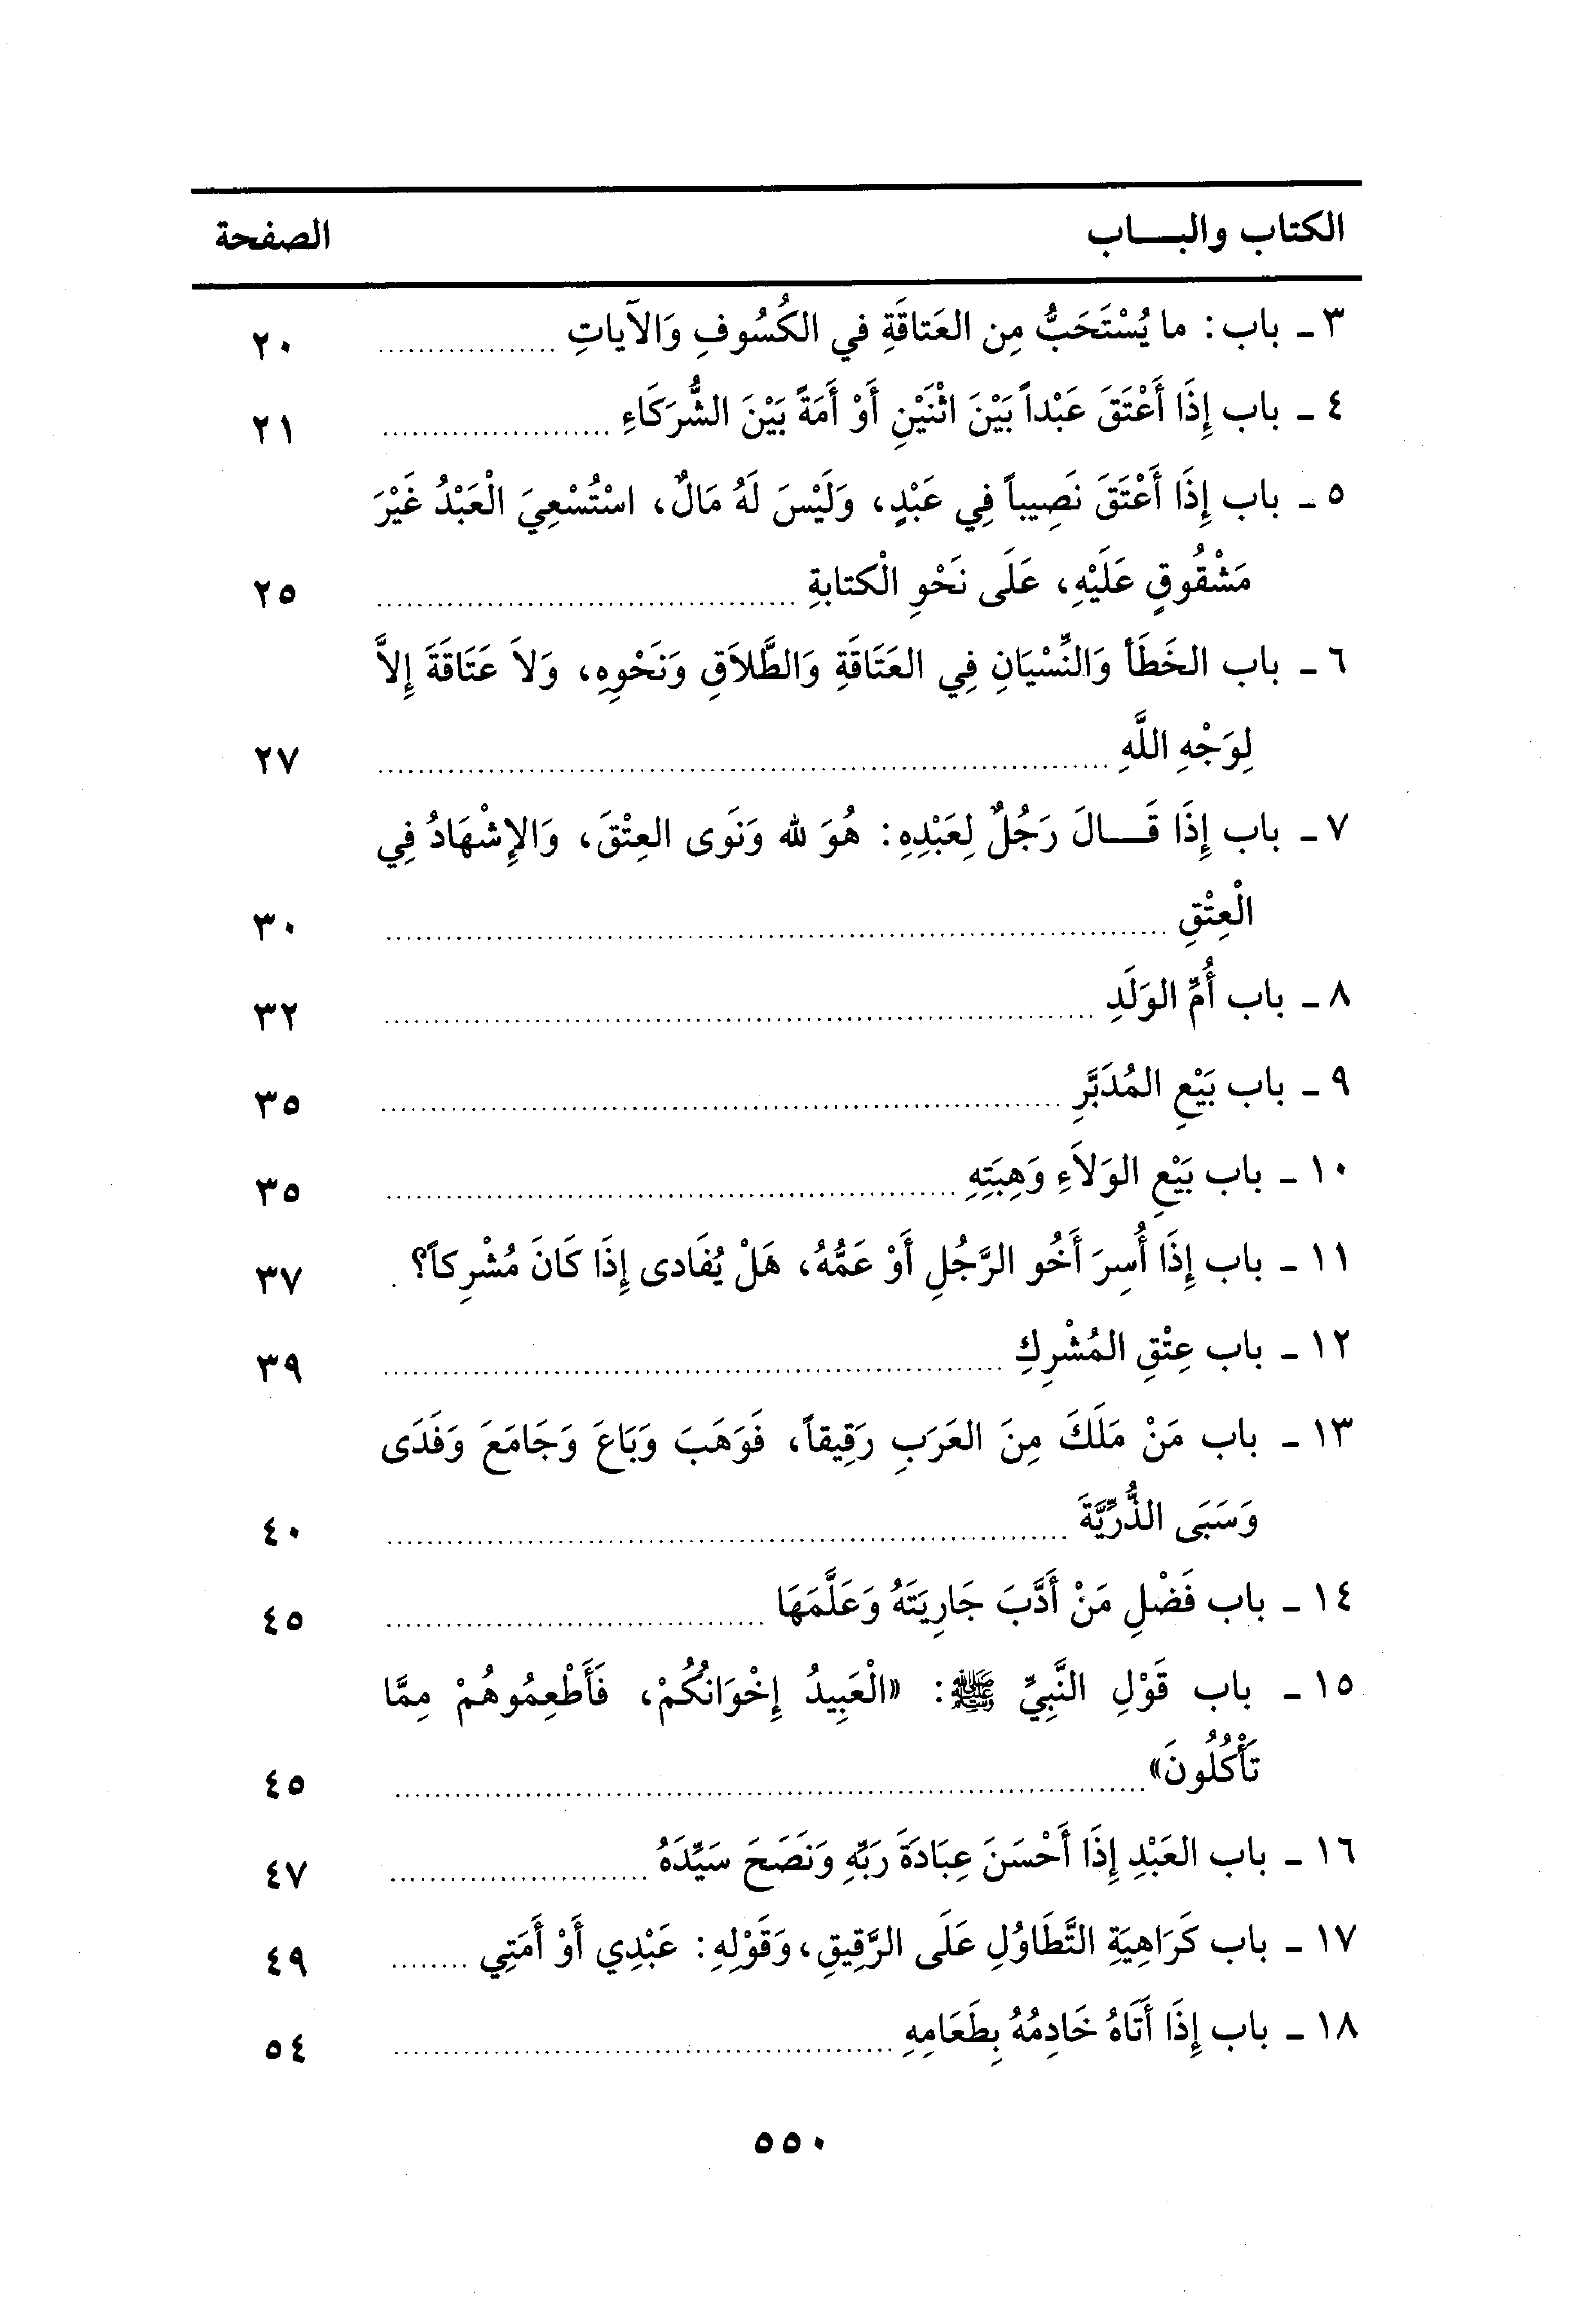 الكتاب والبـــاب الصفحة
٣ ـ باب: ما يُسْتَحَبُّ مِن العَتاقَةِ في الكُسُوفِ وَالآياتِ .................. ٢٠
٤ ـ باب إِذَا أَعْتَقَ عَبْداً بَيْنَ اثْنَيْنِ أَوْ أَمَةً بَيْنَ الشُّرَكَاءِ ....................... ٢١
٥ ـ باب إِذَا أَعْتَقَ نَصِيباً فِي عَبْدٍ، وَلَيْسَ لَهُ مَالٌ، اسْتُسْعِيَ الْعَبْدُ غَيْرَ
مَشْقُوقٍ عَلَيْهِ، عَلَى نَحْوِ الْكتابةِ .......................................... ٢٥
٦ ـ باب الخَطَأ وَالنِّسْيَانِ فِي العَتَاقَةِ وَالطَّلاَقِ وَنَحْوِهِ، وَلاَ عَتَاقَةَ إِلاَّ
لِوَجْهِ اللَّهِ .......................................................................... ٢٧
٧ ـ باب إِذَا قَـــالَ رَجُلٌ لِعَبْدِهِ: هُوَ لله وَنَوى العِتْقَ، وَالإِشْهَادُ فِي
الْعِتْقِ .............................................................................. ٣٠
٨ ـ باب أُمِّ الوَلَدِ ....................................................................... ٣٢
٩ ـ باب بَيْعِ المُدَبَّرِ .................................................................... ٣٥
١٠ ـ باب بَيْعِ الوَلاَءِ وَهِبَتِهِ ......................................................... ٣٥
١١ ـ باب إِذَا أُسِرَ أَخُو الرَّجُلِ أَوْ عَمُّهُ، هَلْ يُفَادى إِذَا كَانَ مُشْرِكاً؟ . ٣٧
١٢ ـ باب عِتْقِ المُشْرِكِ .............................................................. ٣٩
١٣ ـ باب مَنْ مَلَكَ مِنَ العَرَبِ رَقِيقاً، فَوَهَبَ وَبَاعَ وَجَامَعَ وَفَدَى
وَسَبَى الذُّرِّيَّةَ .................................................................... ٤٠
١٤ ـ باب فَضْلِ مَنْ أَدَّبَ جَارِيَتَهُ وَعَلَّمَهَا ...................................... ٤٥
١٥ ـ باب قَوْلِ النَّبِيِّ ﷺ: «الْعَبِيدُ إِخْوَانُكُمْ، فَأَطْعِمُوهُمْ مِمَّا
تَأْكُلُونَ» ........................................................................... ٤٥
١٦ ـ باب العَبْدِ إِذَا أَحْسَنَ عِبَادَةَ رَبِّهِ وَنَصَحَ سَيِّدَهُ .......................... ٤٧
١٧ ـ باب كَرَاهِيَةِ التَّطَاوُلِ عَلَى الرَّقِيقِ، وَقَوْلِهِ: عَبْدِي أَوْ أَمَتِي ........ ٤٩
١٨ ـ باب إِذَا أَتَاهُ خَادِمُهُ بِطَعَامِهِ .................................................. ٥٤
٥٥٠